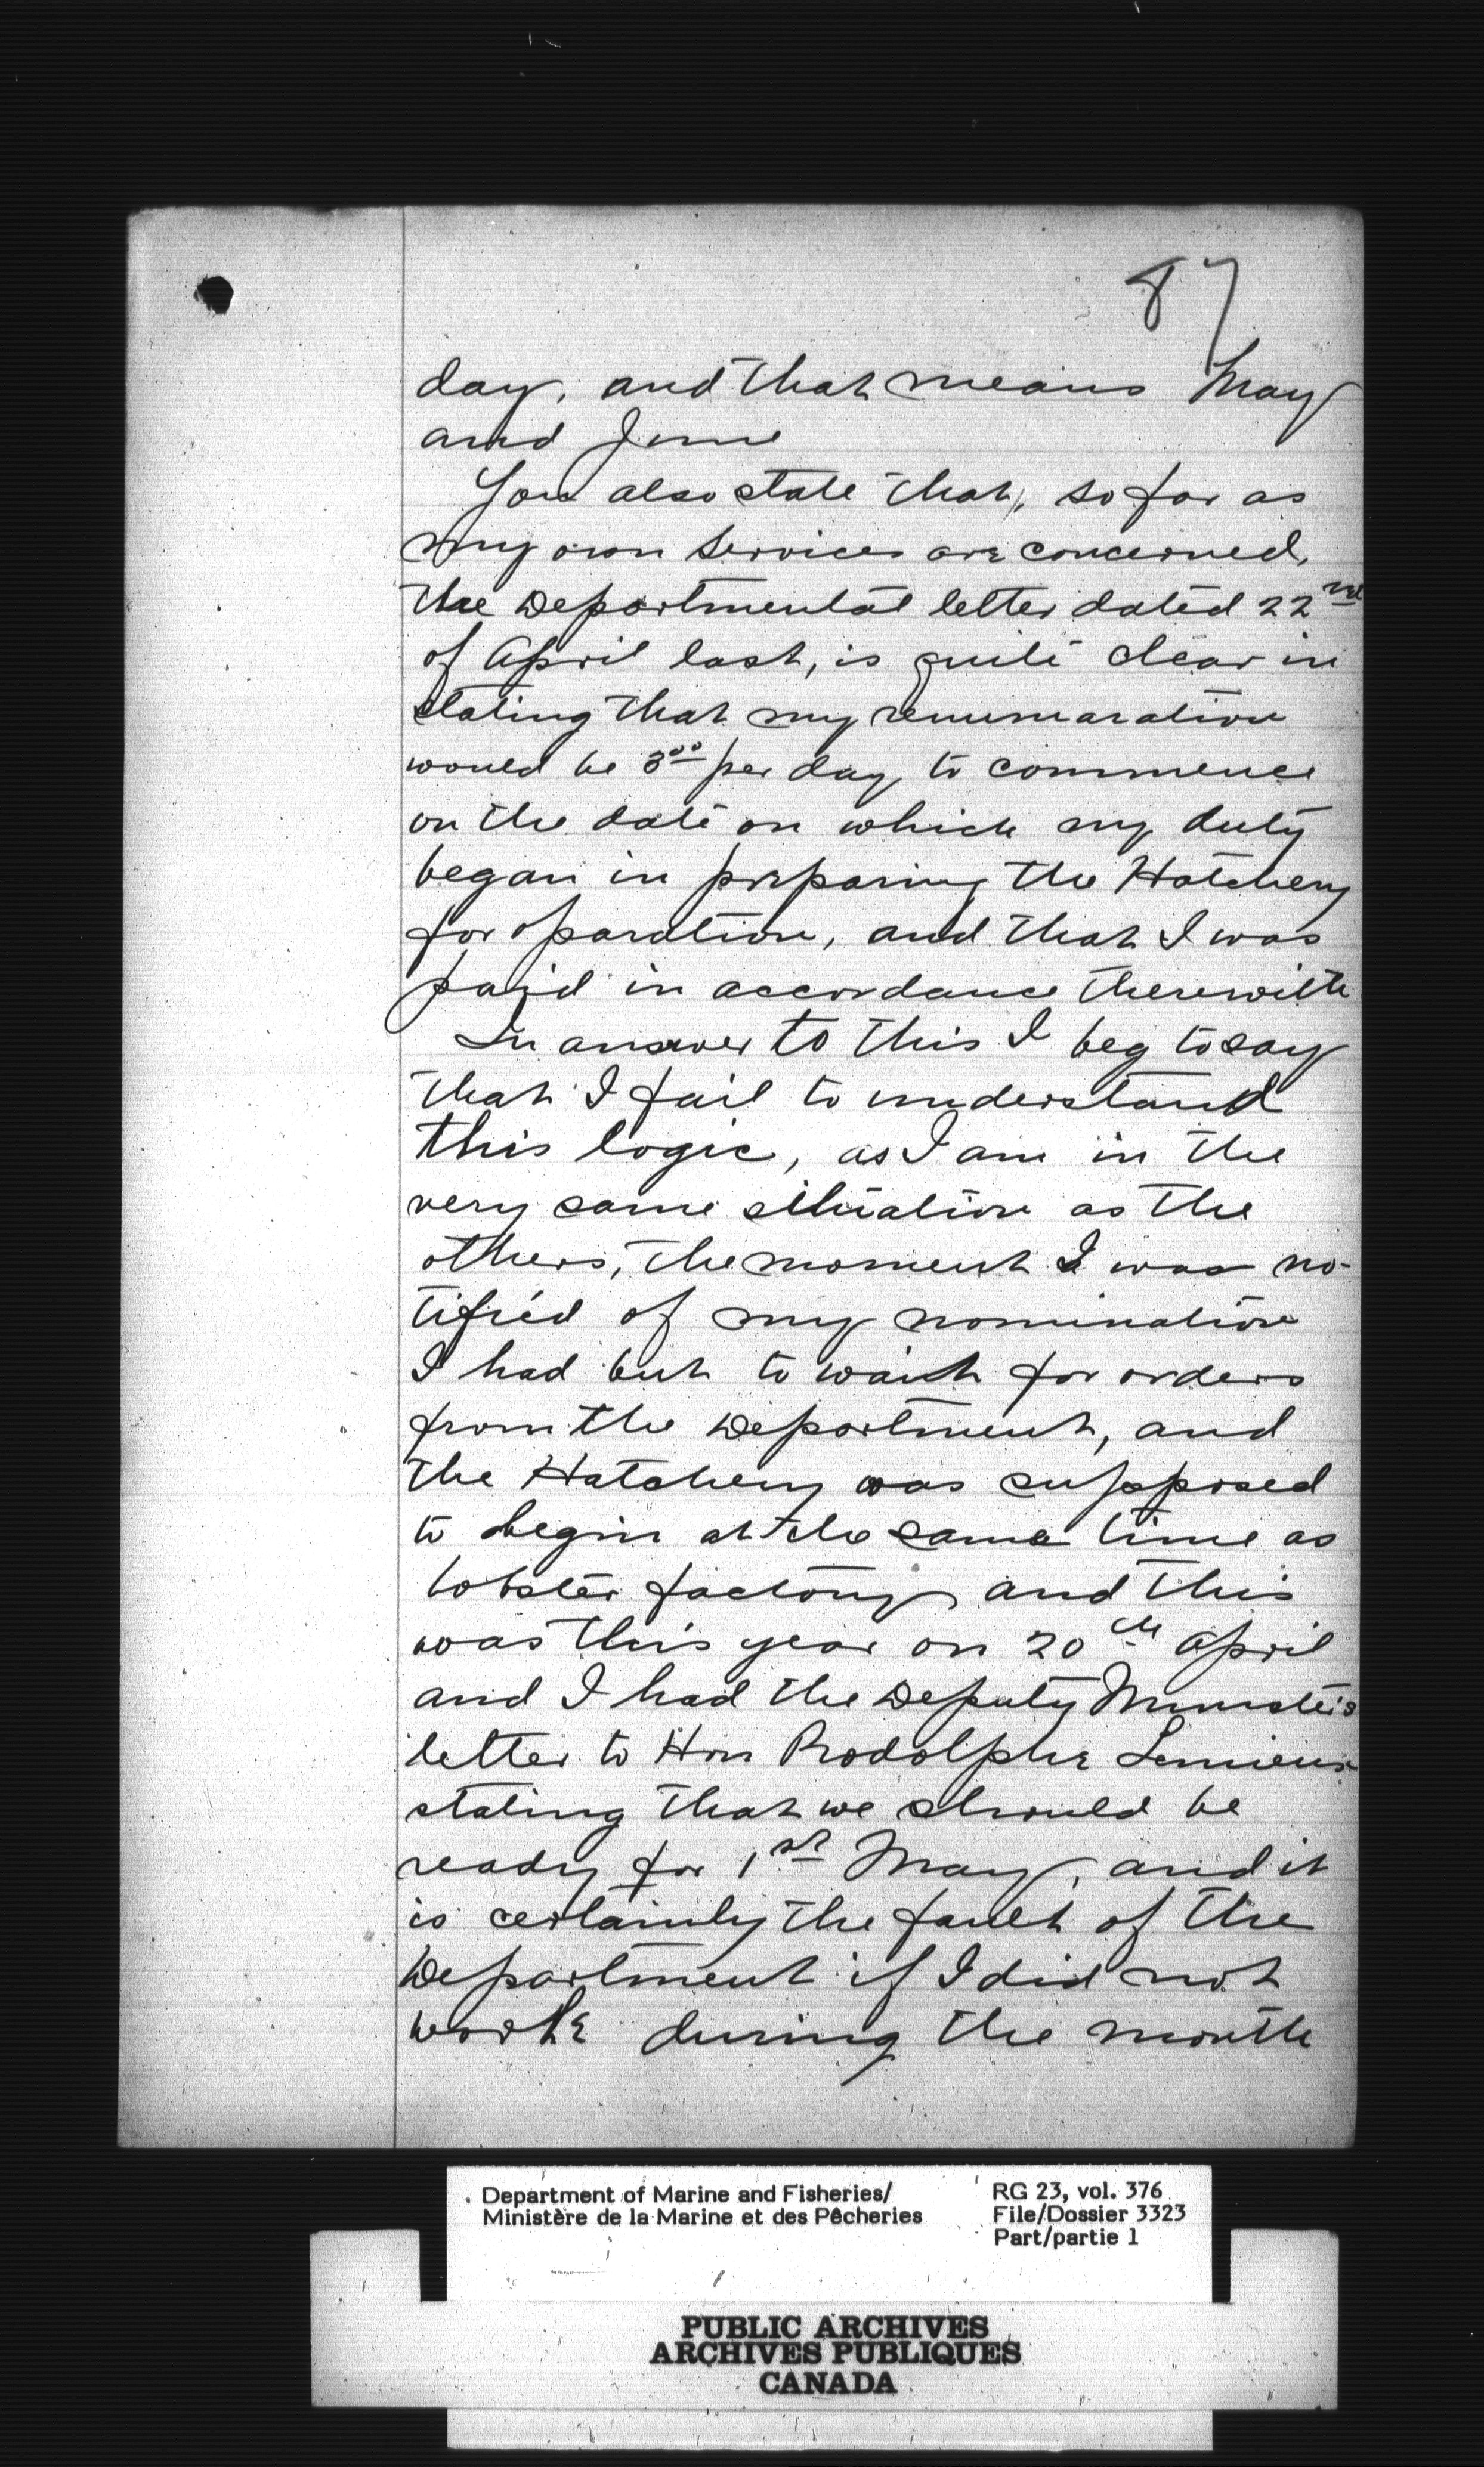 87
day, and that means May
and June
You also state that, so far as
my own services are concerned,
the Departmental letter dated 22nd
of April last, is quite clear in
stating that my renumaration
would be 3.00 per day to commence
on the date on which my duty
began in preparing the Hatchery
for oparation, and that I was
paid in accordance therewith
In answer to this I beg to say
that I fail to understand
this logic, as I am in the
very same situation as the
others, the moment I was no-
tified of my nomination
I had but to wait for orders
from the Department, and
the Hatchery was supposed
to begin at the same time as
lobster factory and this
was this year on 20th April
and I had the Deputy Minister's
letter to Hon Rodolphe Lemieux
stating that we should be
ready for 1st May, and it
is certainly the fault of the
Department if I did not
work during the month
Department of Marine and Fisheries/
Ministère de la Marine et des Pêcheries
RG 23, vol. 376
File/Dossier 3323
Part/partie 1
PUBLIC ARCHIVES
ARCHIVES PUBLIQUES
CANADA